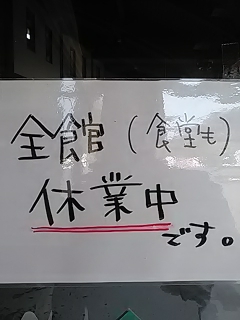 全館(食堂も)
休業中
です。